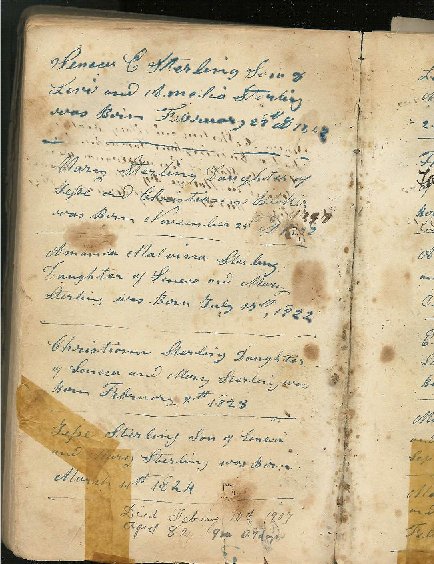 Seneca C Sterling Son of
Levi and Amelia Sterling
was Born February
Mary Sterling Daughter of
Jesse and
was Born November
Amanda Malvina Sterling
Daughter of Seneca and Mary
Sterling was Born July 1822
Christiann Sterling Daughter
of Seneca and Mary Sterling was
Born February 8th 1823
Jesse Sterling Son of Seneca
and Mary Sterling was Born
March 11th 1824
Died 1907
Aged 82